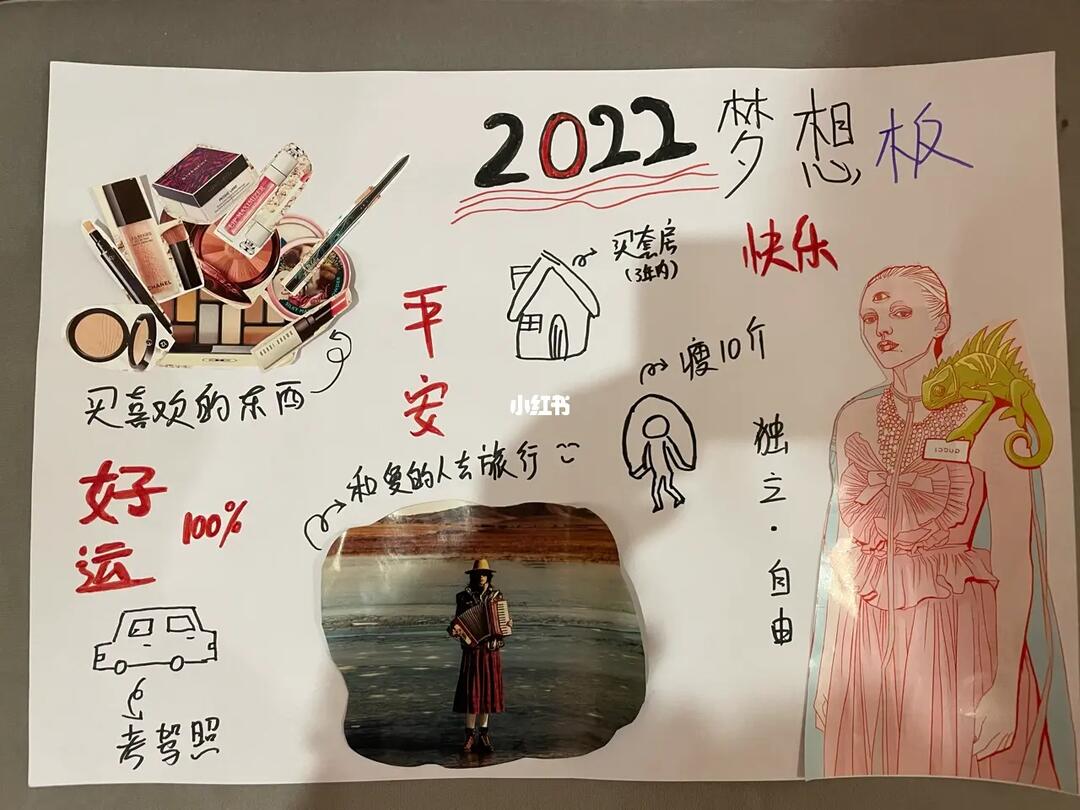 2022 梦想板
买套房
(3年内)
快乐
平安
瘦10斤
买喜欢的东西
CHANEL
小红书
和爱的人去旅行
独立·自由
GUCCI
好运
100%
考驾照